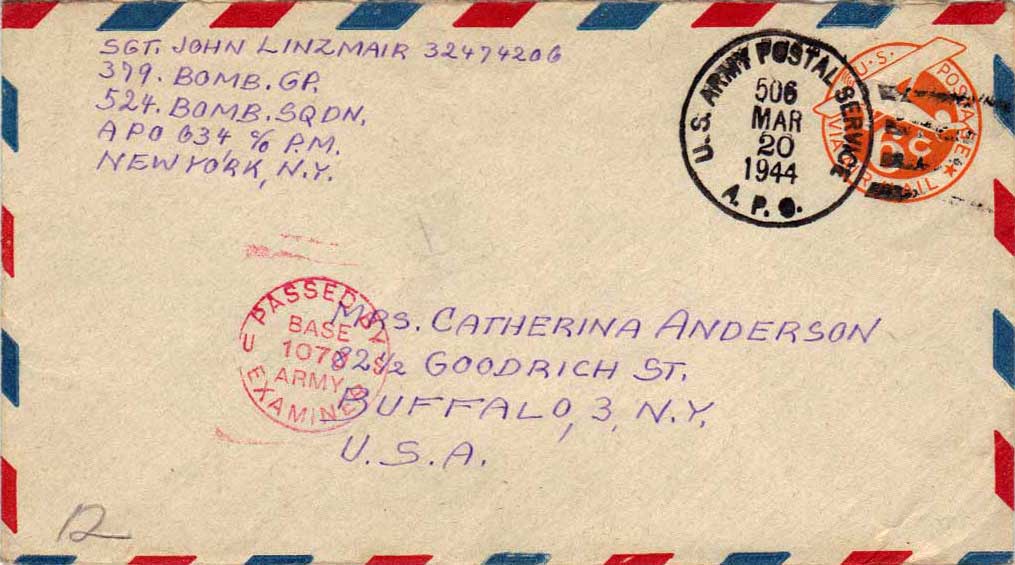 SGT. JOHN LINZMAIR 32474206
379. BOMB. GP.
524. BOMB. SQDN.
A P O 634 c/o P.M.
NEW YORK, N.Y.
U.S. ARMY POSTAL SERVICE
506
MAR
20
1944
A. P. O.
U.S. POSTAGE
6c
VIA AIR MAIL
PASSED BY
BASE
1078
ARMY
EXAMINER
U S
MRS. CATHERINA ANDERSON
82 1/2 GOODRICH ST.
BUFFALO, 3, N.Y.
U. S. A.
12